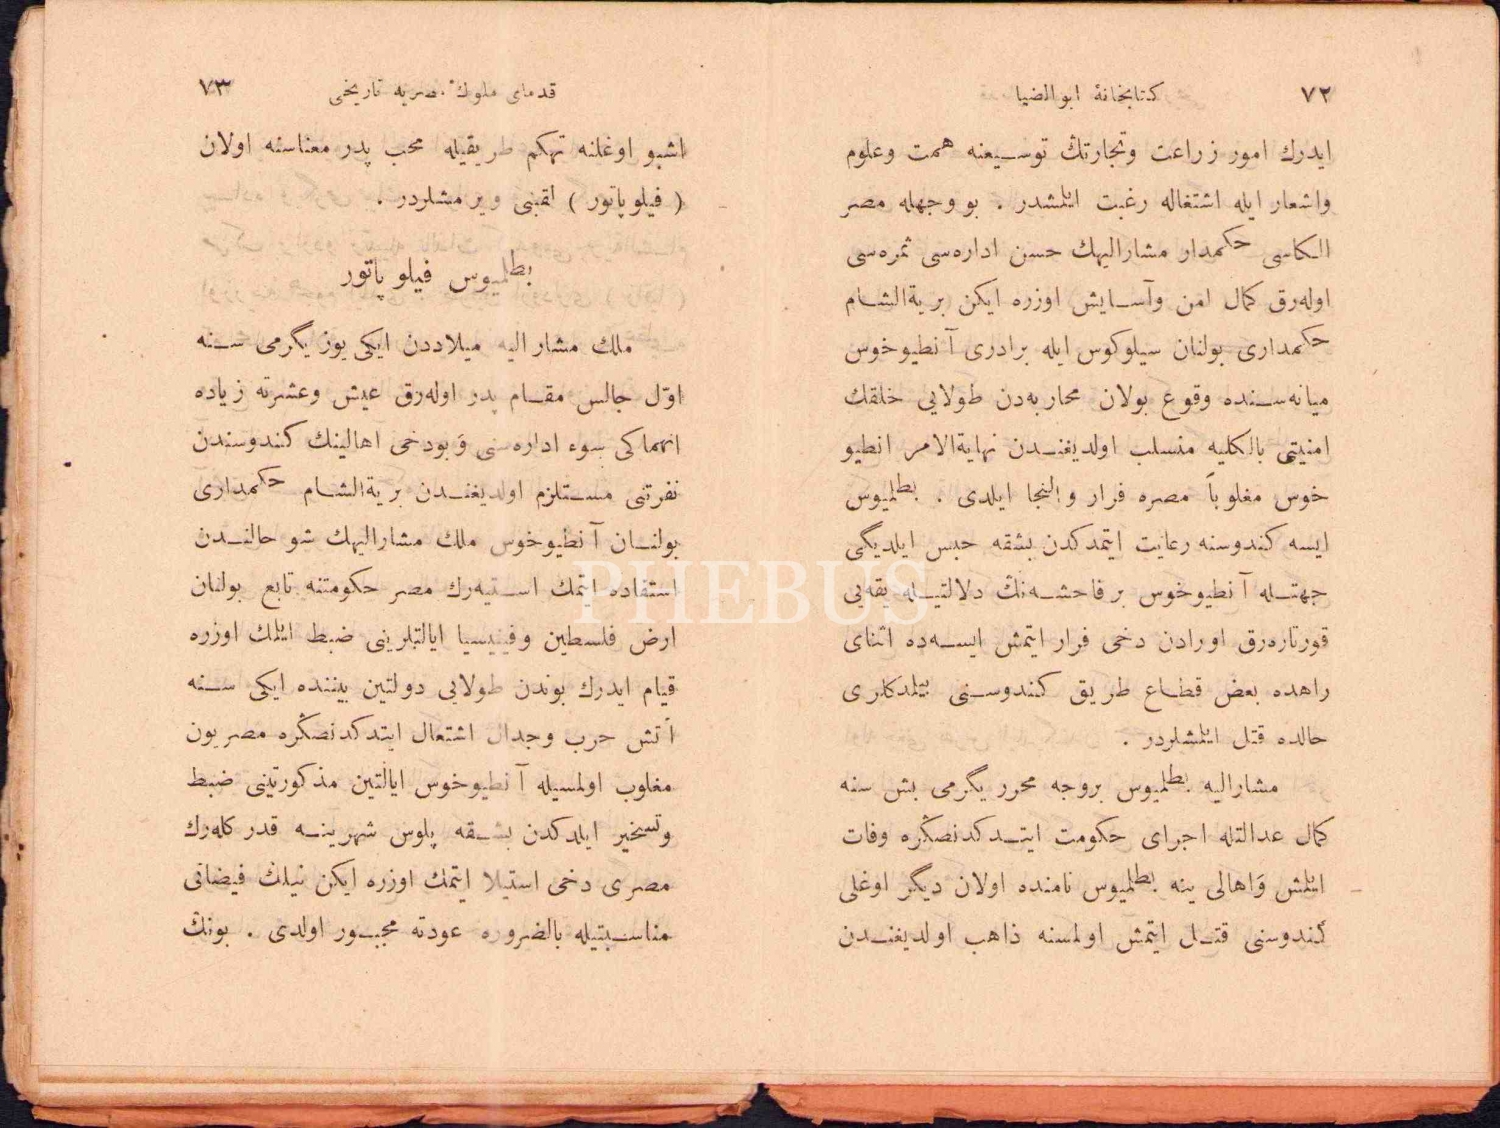 ٧٢
كتابخانهٔ ابوالضيا
ايدرك امور زراعت وتجارتك توسيعنه همت وعلوم
واشعار ايله اشتغاله رغبت ايلشدر . بو وجهله مصر
الكاسى حكمدار مشاراليهك حسن اداره‌سى ثمره‌سى
اوله‌رق كمال امن وآسايش اوزره ايكن برية‌الشام
حكمدارى بولنان سيلوكوس ايله برادرى آنطيوخوس
ميانه‌سنده وقوع بولان محاربه‌دن طولايى خلقك
امنيتى بالكليه منسلب اولديغندن نهاية‌الامر انطيو
خوس مغلوباً مصره فرار والتجا ايلدى . بطلميوس
ايسه كندوسنه رعايت ايتمدكدن بشقه حبس ايلديگى
جهتله آنطيوخوس بر فاحشه‌نڭ دلالتيله يقه‌يى
قورتاره‌رق اورادن دخى فرار ايتمش ايسه‌ده اثناى
راهده بعض قطاع طريق كندوسنى بيلمدكلرى
حالده قتل ايلشلردر .
مشاراليه بطلميوس بروجه محرر يگرمى بش سنه
كمال عدالتله اجراى حكومت ايتدكدنصڭره وفات
ايلش واهالى ينه بطلميوس نامنده اولان ديگر اوغلى
كندوسنى قتل ايتمش اولمسنه ذاهب اولديغندن
قدماى ملوك مصريه تاريخى
٧٣
اشبو اوغلنه تهكم طريقيله محب پدر معناسنه اولان
( فيلوپاتور ) لقبنى ويرمشلردر .
بطلميوس فيلوپاتور
ملك مشاراليه ميلاددن ايكى يوز يگرمى سنه
اوّل جالس مقام پدر اوله‌رق عيش وعشرته زياده
انهماكى سوء اداره‌سنى وبودخى اهالينك كندوسندن
نفرتنى مستلزم اولديغندن برية‌الشام حكمدارى
بولنان آنطيوخوس ملك مشاراليهك شو حالندن
استفاده ايتمك استيه‌رك مصر حكومتنه تابع بولنان
ارض فلسطين وفينيسيا ايالتلرينى ضبط ايلك اوزره
قيام ايدرك بوندن طولايى دولتين بيننده ايكى سنه
آتش حرب وجدال اشتعال ايتدكدنصڭره مصريون
مغلوب اولمسيله آنطيوخوس ايالتين مذكورتينى ضبط
وتسخير ايلدكدن بشقه پلوس شهرينه قدر كله‌رك
مصرى دخى استيلا ايتمك اوزره ايكن نيلڭ فيضانى
مناسبتيله بالضروره عودته مجبور اولدى . بونڭ
PHEBUS